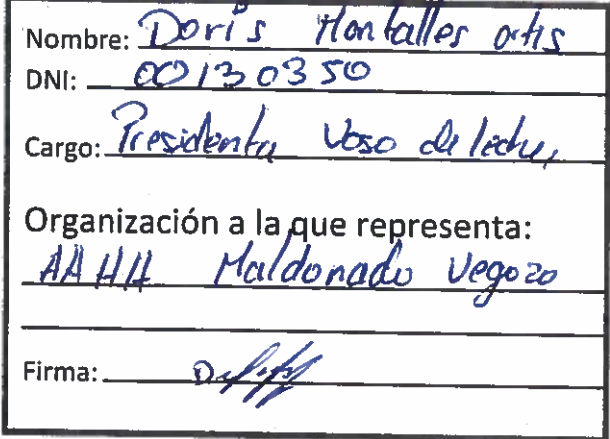 Nombre: Doris Montalles ortis
DNI: 00130350
Cargo: Presidenta Vaso de leche,
Organización a la que representa:
AAHH Maldonado Vegazo
Firma: